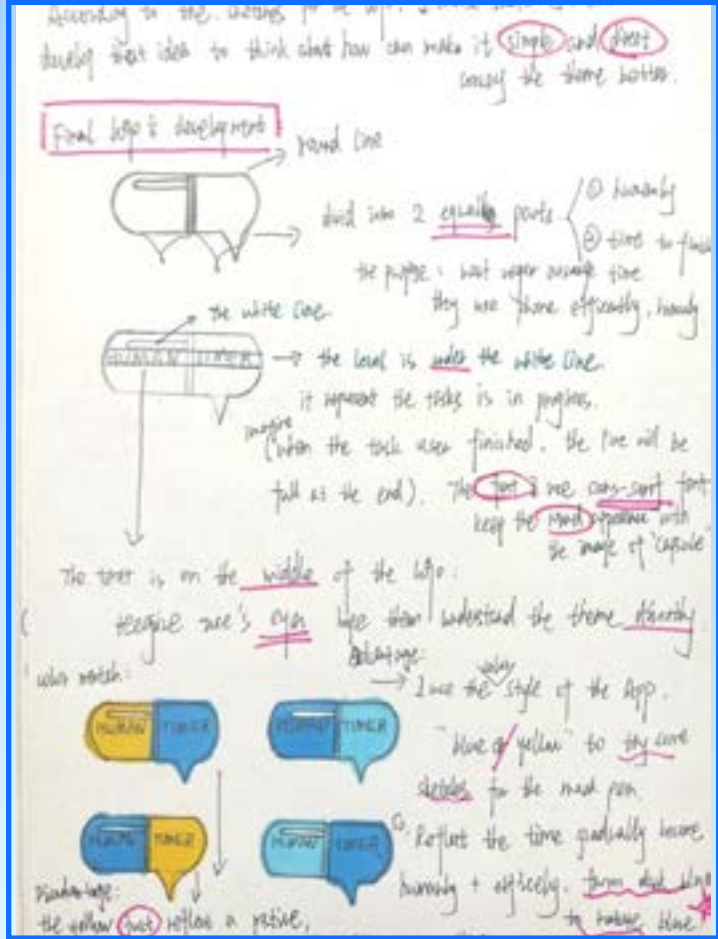 According to the sketches for the logo,
develop that idea to think about how can make it simple and direct
convey the theme better.
Final logo's development
round line
divid into 2 equally parts
① humanly
② time to finish
the purpose : want user manage time
they use phone efficiently, humanly
the white line.
HUMAN TIMER
the level is under the white line.
it represent the tasks is in progress.
imagine
(when the task user finished. the line will be
full at the end). The font I use sans-serif font
keep the round appearance with
the image of 'capsule'
The text is on the middle of the logo.
user's eyes them understand the theme directly
color match:
Advantage:
HUMAN TIMER
HUMAN TIMER
I use the color style of the App.
"blue & yellow" to try some
sketches for the mark pen.
HUMAN TIMER
HUMAN TIMER
Reflect the time gradually become
humanly +
blue
Disadvantage:
the yellow just reflect a